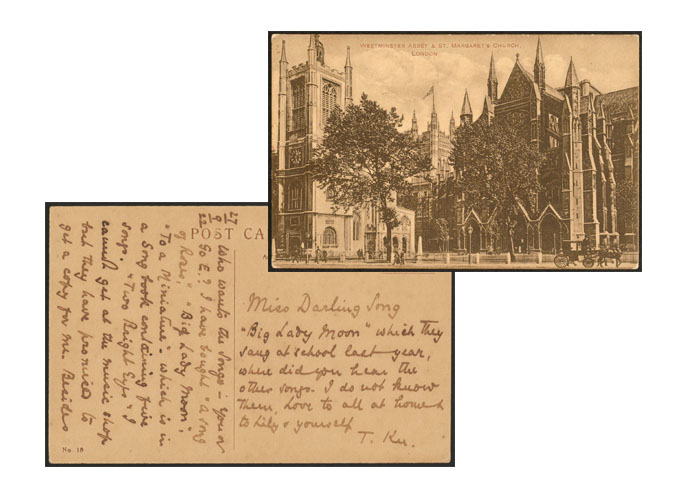 WESTMINSTER ABBEY & ST. MARGARET'S CHURCH,
LONDON.
POST CA
27
9
22
Who wants the Songs – You or
Go E.? I have bought "A song
of Roses", "Big Lady Moon",
"To a Miniature" – which is in
a Song book containing five
songs. "Two Bright Eyes" I
cannot get at the music shop
but they have promised to
get a copy for me. Besides
Miss Darling Song
"Big Lady Moon" which they
sang at school last year,
where did you hear the
other songs. I do not know
them. Love to all at home &
to Lily & yourself
T.
No. 18